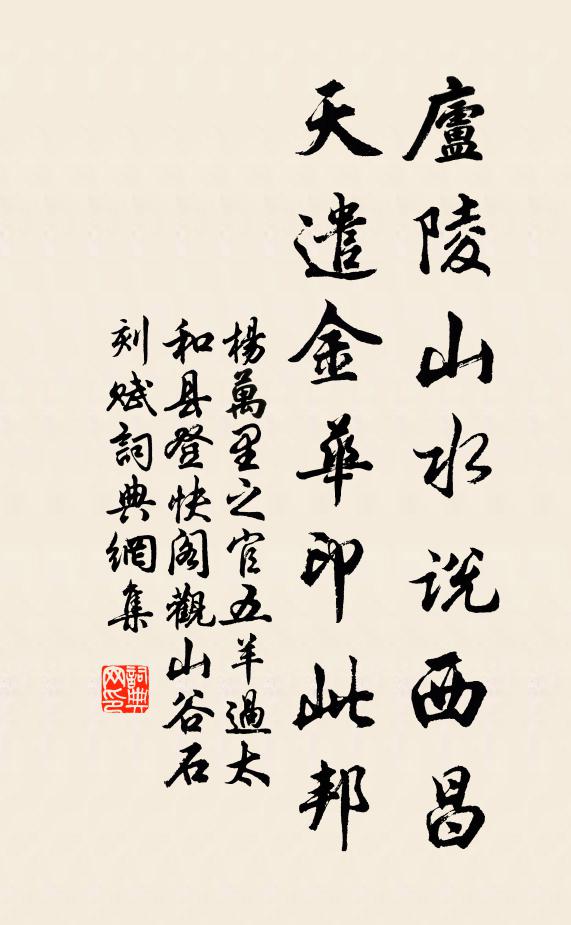 廬陵山水説西昌
天遣金華印此邦
楊萬里之官五羊過太
和县登快阁觀山谷石
刻赋詞典網集
詞典
网印